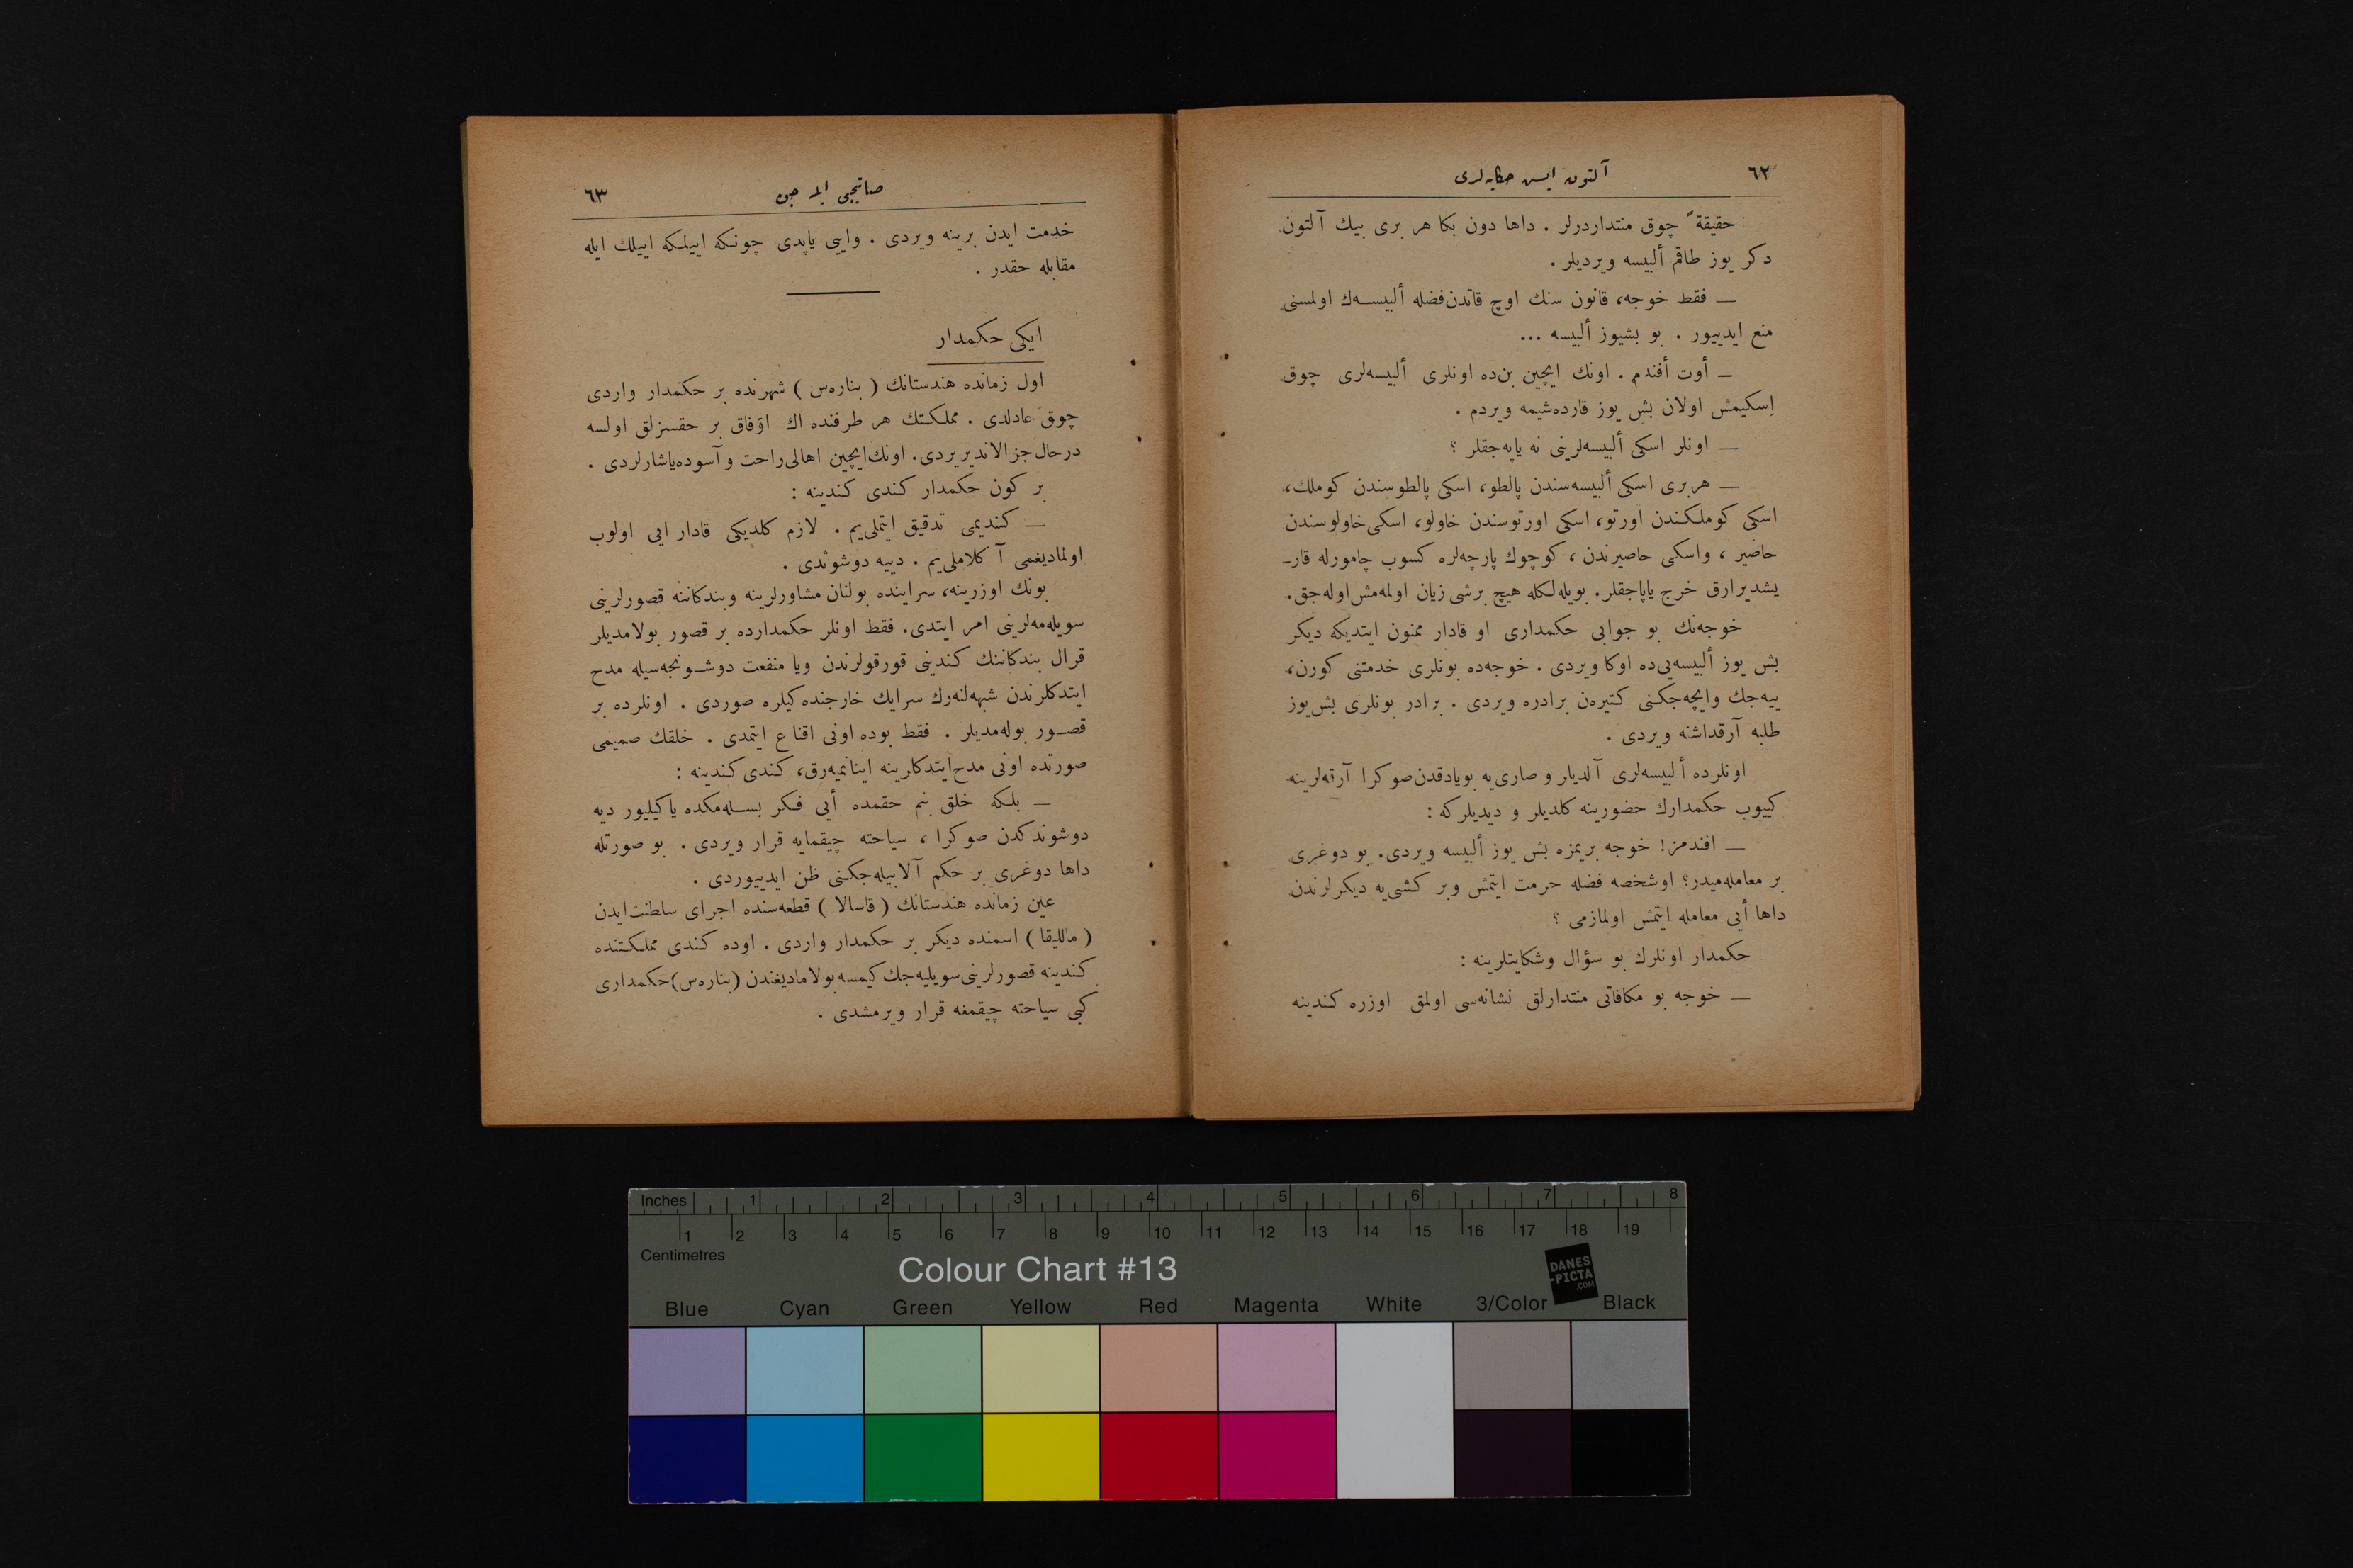 ٦٢
آلتون ايس حكايه‌لری
حقيقةً چوق منتداردرلر . داها دون بكا هر بری بيك آلتون
دكر يوز طاقم ألبيسه ويرديلر .
— فقط خوجه، قانون سنك اوچ قاتدن فضله ألبيسه‌ك اولمسنی
منع ايدييور . بو بشيوز ألبيسه ...
— أوت أفندم . اونك ايچين بن‌ده اونلری ألبيسه‌لری چوق
اسكيمش اولان بش يوز قارده‌شيمه ويردم .
— اونلر اسكی ألبيسه‌لرينی نه ياپه‌جقلر ؟
— هربری اسكی ألبيسه‌سندن پالطو، اسكی پالطوسندن كوملك،
اسكی كوملكندن اورتو، اسكی اورتوسندن خاولو، اسكی خاولوسندن
حاصير ، واسكی حاصيرندن ، كوچوك پارچه‌لره كسوب چامورله قار-
يشديرارق خرج ياپاجقلر. بويله‌لكله هيچ برشی زيان اولمه‌مش اوله‌جق.
خوجه‌نك بو جوابی حكمداری او قادار ممنون ايتديكه ديكر
بش يوز ألبيسه‌يی‌ده اوكا ويردی . خوجه‌ده بونلری خدمتنی كورن،
ييه‌جك وايچه‌جكنی كتيره‌ن برادره ويردی . برادر بونلری بش يوز
طلبه آرقداشنه ويردی .
اونلرده ألبيسه‌لری آلديلر و صاری‌يه بويادقدن صوكرا آرقه‌لرينه
كييوب حكمدارك حضورينه كلديلر و ديديلركه :
— افندمز! خوجه بريمزه بش يوز ألبيسه ويردی. بو دوغری
بر معامله‌ميدر؟ اوشخصه فضله حرمت ايتمش وبر كشی‌يه ديكرلرندن
داها أيی معامله ايتمش اولمازمی ؟
حكمدار اونلرك بو سؤال وشكايتلرينه :
— خوجه بو مكافاتی منتدارلق نشانه‌سی اولمق اوزره كندينه
صاتيجی ايله جن
٦٣
خدمت ايدن برينه ويردی . وايی ياپدی چونكه اييلكه اييلك ايله
مقابله حقدر .
ايكی حكمدار
اول زمانده هندستانك ( بناره‌س ) شهرنده بر حكمدار واردی
چوق عادلدی . مملكتك هر طرفنده اك اوفاق بر حقسزلق اولسه
درحال جزالانديريردی. اونك ايچين اهالی راحت و آسوده ياشارلردی .
بر كون حكمدار كندی كندينه :
— كنديمی تدقيق ايتملی‌يم . لازم كلديكی قادار ايی اولوب
اولماديغمی آكلاملی‌يم . دييه دوشوندی .
بونك اوزرينه، سراينده بولنان مشاورلرينه وبندكاننه قصورلرينی
سويله‌مه‌لرينی امر ايتدی. فقط اونلر حكمدارده بر قصور بولامديلر
قرال بندكاننك كندينی قورقولرندن ويا منفعت دوشونجه‌سيله مدح
ايتدكلرندن شبهه‌لنه‌رك سرايك خارجنده‌كيلره صوردی . اونلرده بر
قصور بوله‌مديلر . فقط بوده اونی اقناع ايتمدی . خلقك صميمی
صورتده اونی مدح ايتدكلرينه اينانميه‌رق، كندی كندينه :
— بلكه خلق بنم حقمده أيی فكر بسله‌مكده ياكيليور ديه
دوشوندكدن صوكرا ، سياحته چيقمايه قرار ويردی . بو صورتله
داها دوغری بر حكم آلابيله‌جكنی ظن ايدييوردی .
عين زمانده هندستانك ( قاسالا ) قطعه‌سنده اجرای سلطنت ايدن
( ماليقا ) اسمنده ديكر بر حكمدار واردی . اوده كندی مملكتنده
كندينه قصورلرينی سويليه‌جك كيمسه بولاماديغندن (بناره‌س) حكمداری
كبی سياحته چيقمغه قرار ويرمشدی .
Inches 1 2 3 4 5 6 7 8
1 2 3 4 5 6 7 8 9 10 11 12 13 14 15 16 17 18 19
Centimetres
Colour Chart #13
DANES
-PICTA
.COM
Blue Cyan Green Yellow Red Magenta White 3/Color Black